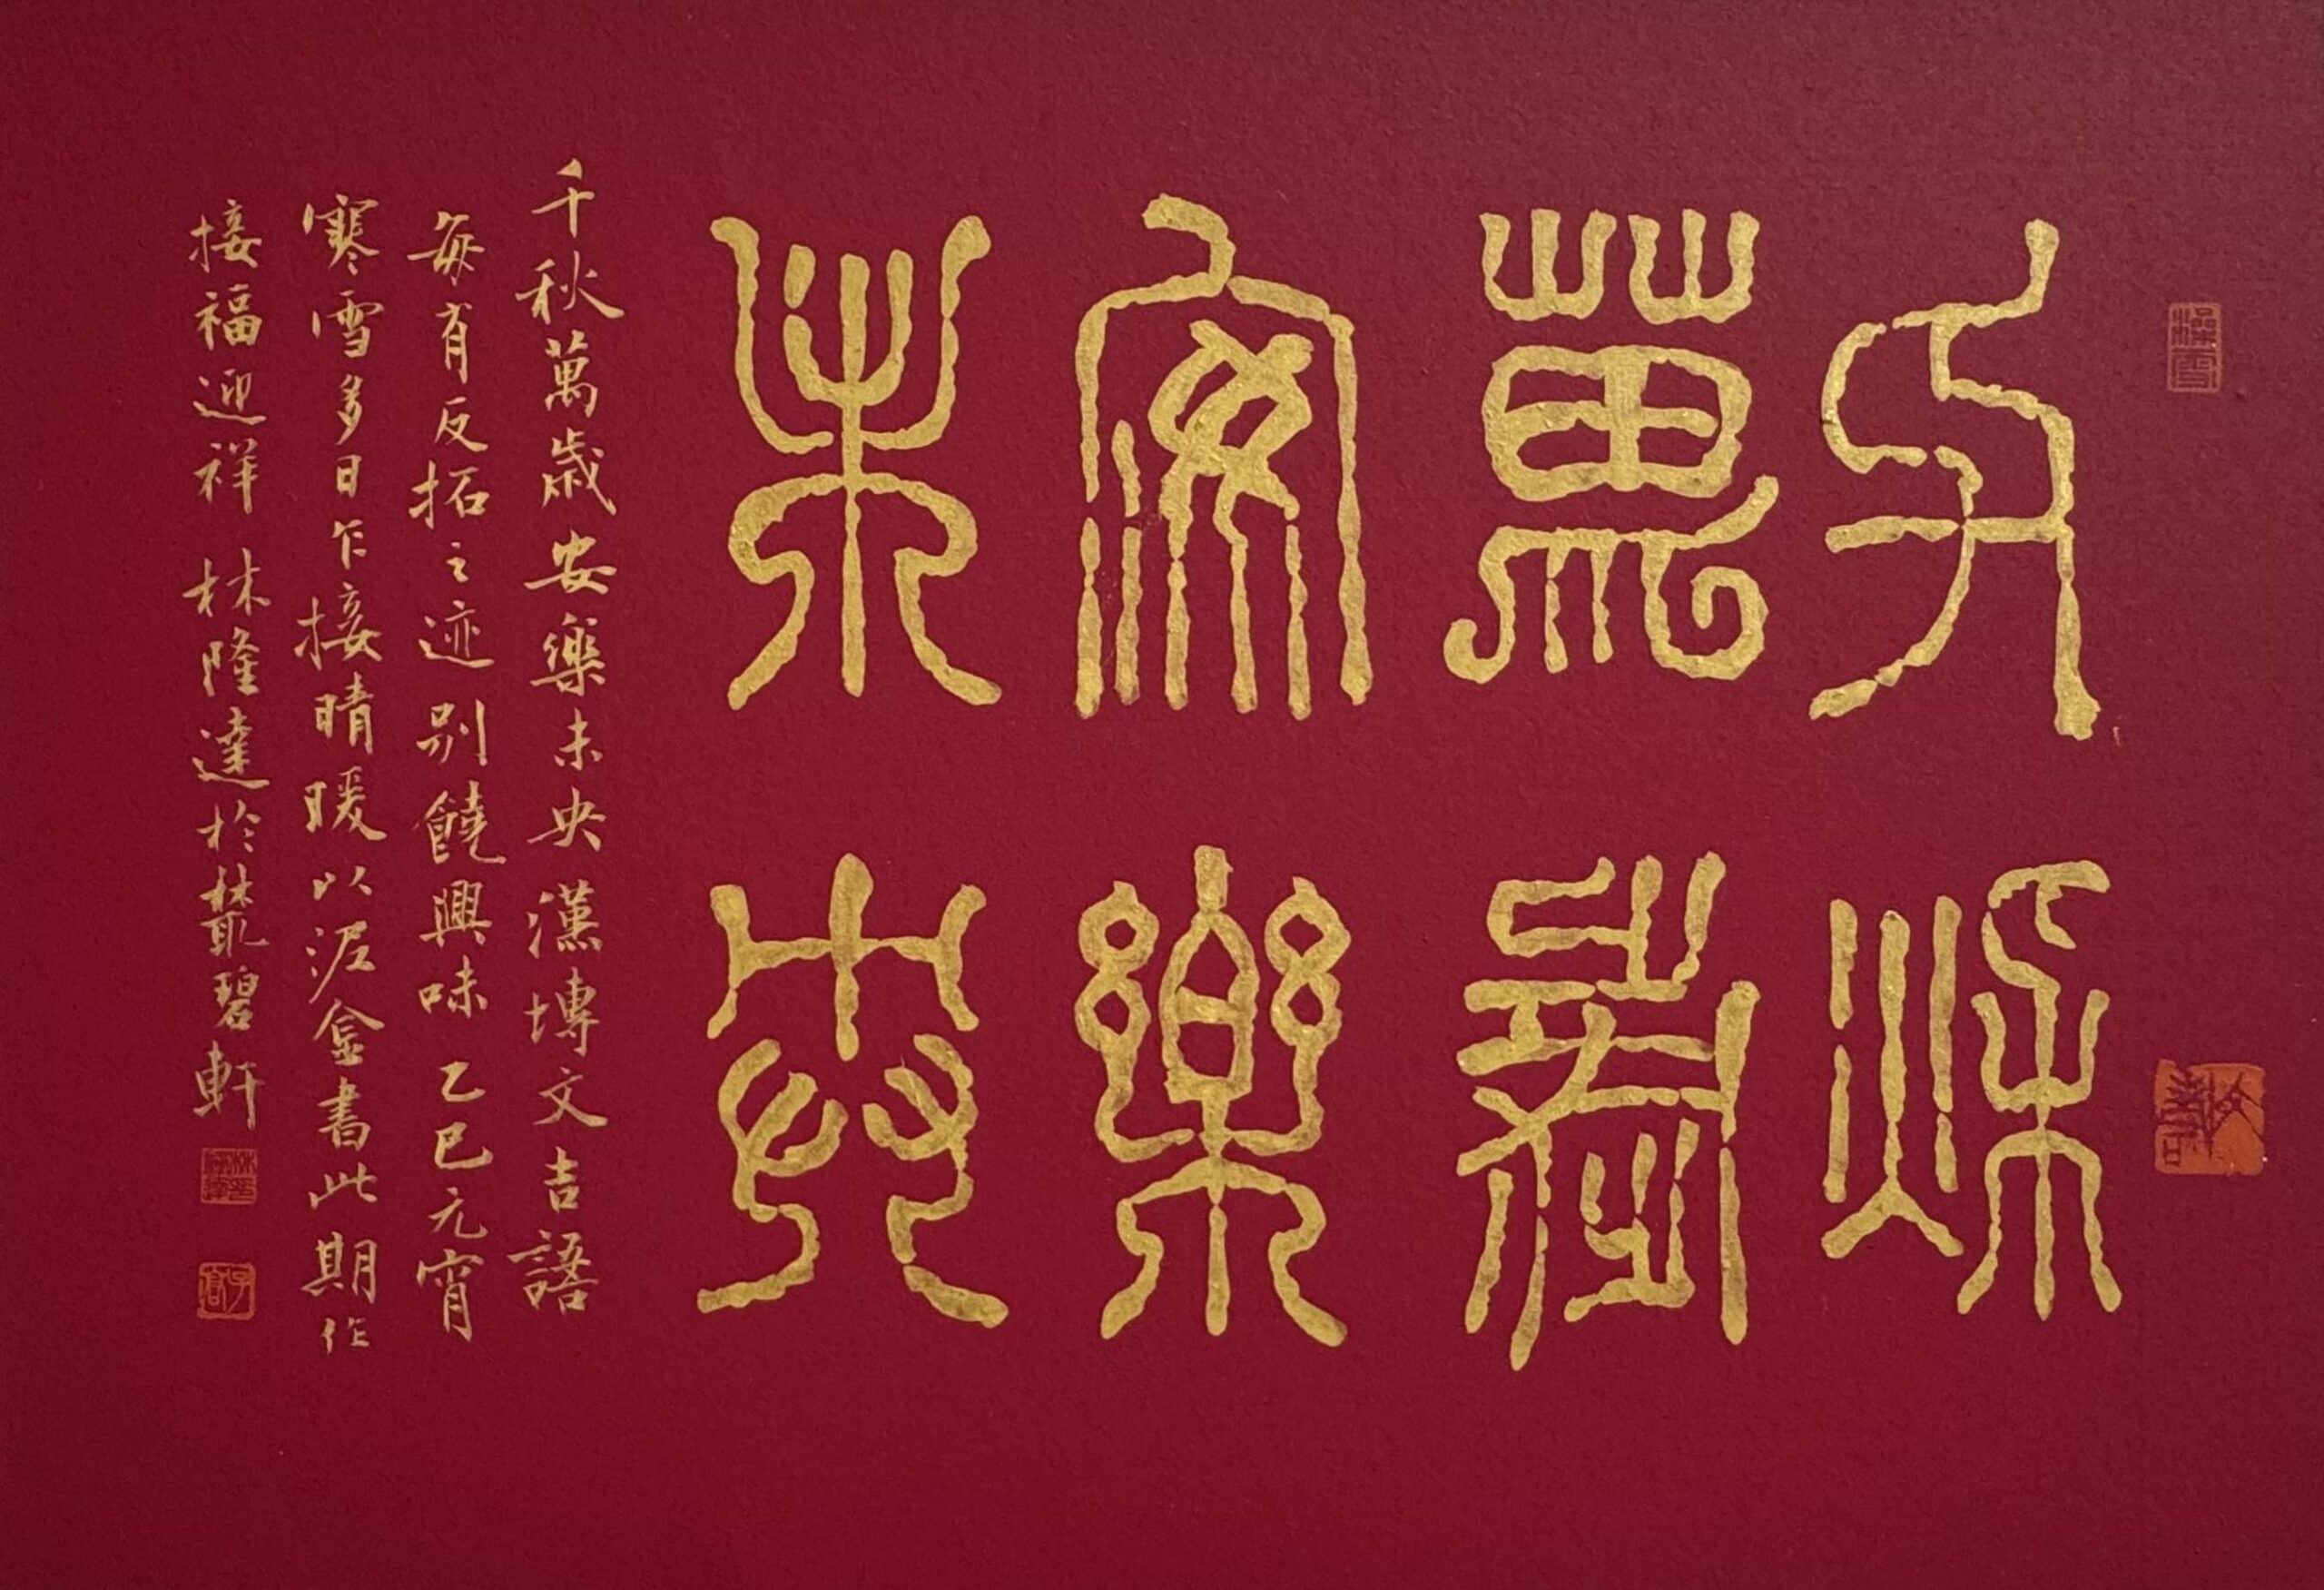 千秋
萬歲
安樂
未央
千秋萬歲安樂未央漢塼文吉語
每有反拓之迹别饒興味乙巳元宵
寒雪多日乍接晴暖以泥金書此期作
接福迎祥林隆達於叢碧軒